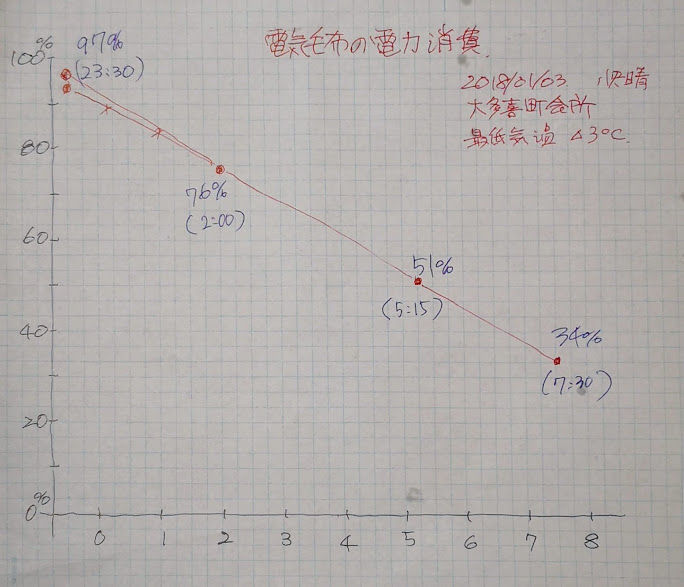 電気毛布の電力消費
2018/01/03 快晴
大多喜町会所
最低気温 △3℃
%
100
97%
(23:30)
80
76%
(2:00)
60
51%
(5:15)
40
34%
(7:30)
20
%
0
0 1 2 3 4 5 6 7 8